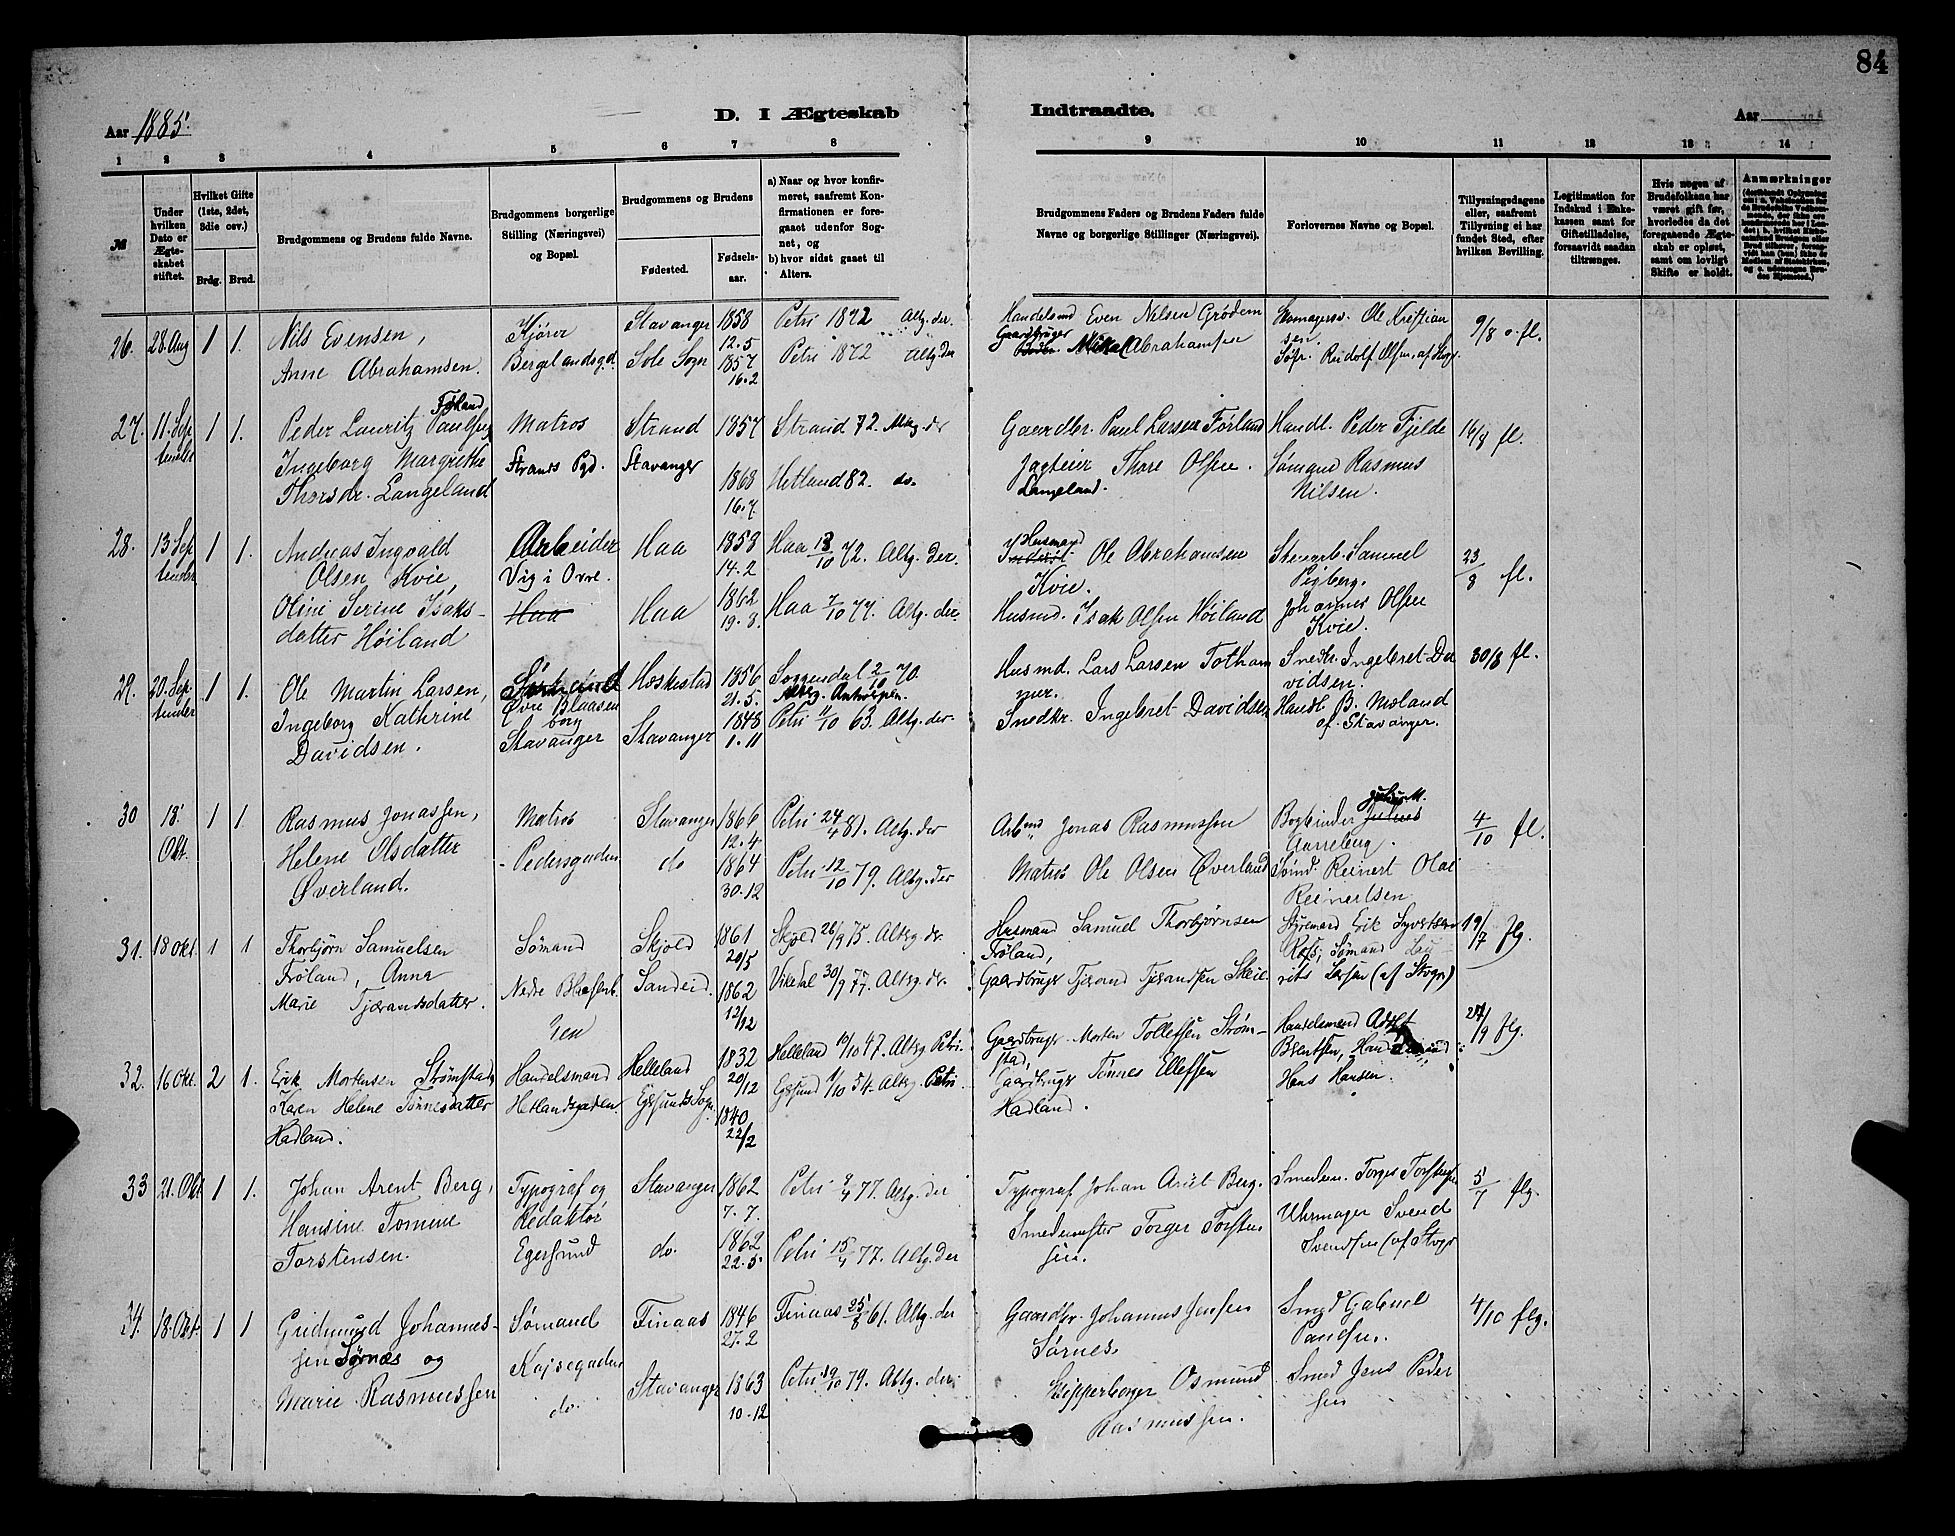 84
Aar 1885.
D. I Ægteskab Indtraadte.
Aar
1 2 3 4 5 6 7 8 9 10 11 12 13 14
№
Under hvilken Dato er Ægteskabet stiftet.
Hvilket Gifte (1ste, 2det, 3die osv.)
Brdg. Brud.
Brudgommens og Brudens fulde Navne.
Brudgommens borgerlige Stilling (Næringsvei) og Bopæl.
Brudgommens og Brudens
Fødested.
Fødselsaar.
a) Naar og hvor konfirmeret, saafremt Konfirmationen er foregaaet udenfor Sognet, og
b) hvor sidst gaaet til Alters.
Brudgommens Faders og Brudens Faders fulde Navne og borgerlige Stillinger (Næringsvei).
Forlovernes Navne og Bopæl.
Tillysningsdagene eller, saafremt Tillysning ei har fundet Sted, efter hvilken Bevilling.
Legitimation for Indskud i Enkekassen samt for Giftetilladelse, forsaavidt saadan tiltrænges.
Hvis nogen af Brudefolkene har været gift før, hvorledes da det foregaaende Ægteskab er opløst, samt om lovligt Skifte er holdt.
Anmærkninger
26. 28. Aug 1 1. Nils Evensen, Kjører Stavanger 1858 Petri 1872 Altg. der. Handelsmd Even Nilsen Grødem Ole Kristian 9/8 o. fl.
12.5 Gaardbruger sen.
Anne Abrahamsen. Berglandsgd. Sole Sogn 1857 Petri 1872 Altg. der Mikal Abrahamsen Rudolf Olsen, af Stvgr.
16.2
27. 11. Sep tember 1 1. Peder Lauritz Paulsen Førland Matros Strand 1857 Strand 72. Altg. der Gaardbr. Paul Larsen Førland Handl. Peder Fjelde 16/8 fl.
Ingeborg Margrethe Strands Pgd. Stavanger 1868 Hetland 82. do. Jagteier Thore Olsen. Sømand Rasmus
Thorsdr. Langeland 16.7. Langeland. Nilsen.
28. 13 Sep tember 1 1. Andreas Ingvald Arbeider Haa 1858 Haa 13/10 72. Altg. der. Husmand Ole Abrahamsen Samuel 23/8 fl.
Olsen Kvie, Vig i Ovre. 14.2 Kvie.
Oline Serine Isaks- Haa Haa 1862 Haa 7/10 77. Altg. der. Husmd. Isak Olsen Høiland Johannes Olsen
datter Høiland 19.8. Kvie.
29. 20. Sep tember 1 1. Ole Martin Larsen, Heskestad 1856 Soggendal 2/10 70. Husmd. Lars Larsen Totham Snedk. Ingebret Da 30/8 fl.
Øvre Blaasen 21.5. Altg. Antverpen. mer. vidsen.
Ingeborg Kathrine borg 1848 Petri 11/10 63. Altg. der. Snedkr. Ingebret Davidsen Handl. B. Moland
Davidsen. Stavanger Stavanger 1.11 af Stavanger.
30 18' Okt. 1 1. Rasmus Jonassen, Matros Stavanger 1866 Petri 24/4 81. Altg. der Arbmd Jonas Rasmussen Bogbinder Julius M. 4/10 fl.
12.4 Aarreberg.
Helene Olsdatter Pedersgaden do 1864 Petri 12/10 79. Altg. der Matros Ole Olsen Øverland Sømd. Reinert Olai
Øverland. 30.12 Reinertsen
31. 18 Okt. 1 1 Thorbjørn Samuelsen Sømand Skjold 1861 Skjold 26/9 75. Altrg. der. Husmand Samuel Thorbjørnsen Styrmand Erik Syvertsen 19/7 flg.
Frøland, Anna 20/5 Frøland, Sømand Lau
Marie Tjærandsdatter. Nedre Blaasenb. Sandeid. 1862 Vikedal 30/9 77. Altrg. der. Gaardbruger Tjerand Tjerandsen Skeie. rits Larsen (af Stvgr)
12/12
32. 16 Okt. 2 1. Erik Mortensen Strømstad Handelsmand Helleland 1832 Helleland 10/10 47. Altrg Petri. Gaardbruger Morten Tollefsen Strøm- Handelsmand Adolf 27/9 flg.
20/12 stad, Berentsen, Handelsmand
Karen Helene Tønnesdatter Hetlandsgaden Egersunds Sogn 1840 Egersund 1/10 54. Altrg. Petri Gaardbruger Tønnes Ellefsen Hans Hansen.
Hadland. 22/2 Hadland.
33 21. Okt 1 1. Johan Arent Berg, Typograf og Stavanger 1862 Petri 9/4 77. Altg. der Typograf Johan Arent Berg. Smedem. Torger Torstens 5/7 flg.
Hansine Tomine Redaktør 7.7. Smedemester Torger Torsten Uhrmager Svend
Torstensen. Egersund do. 1862 Petri 15/4 77. Altg. der sen. Svendsen (af Stvgr
22.5
34. 18. Okt. 1 1 Gudmund Johannes- Sømand Finaas 1846 Finaas 25/8 61. Altg. der Gaardbr. Johannes Jensen Smed Gabriel 4/10 flg.
sen Sørnæs og 27.2 Sørnes.
Kajsegaden
Marie Rasmussen do. Stavanger 1863 Petri 19/10 79. Altg. der. Skipperborger Osmund Smed Jens Peder
10.12 Rasmussen. sen